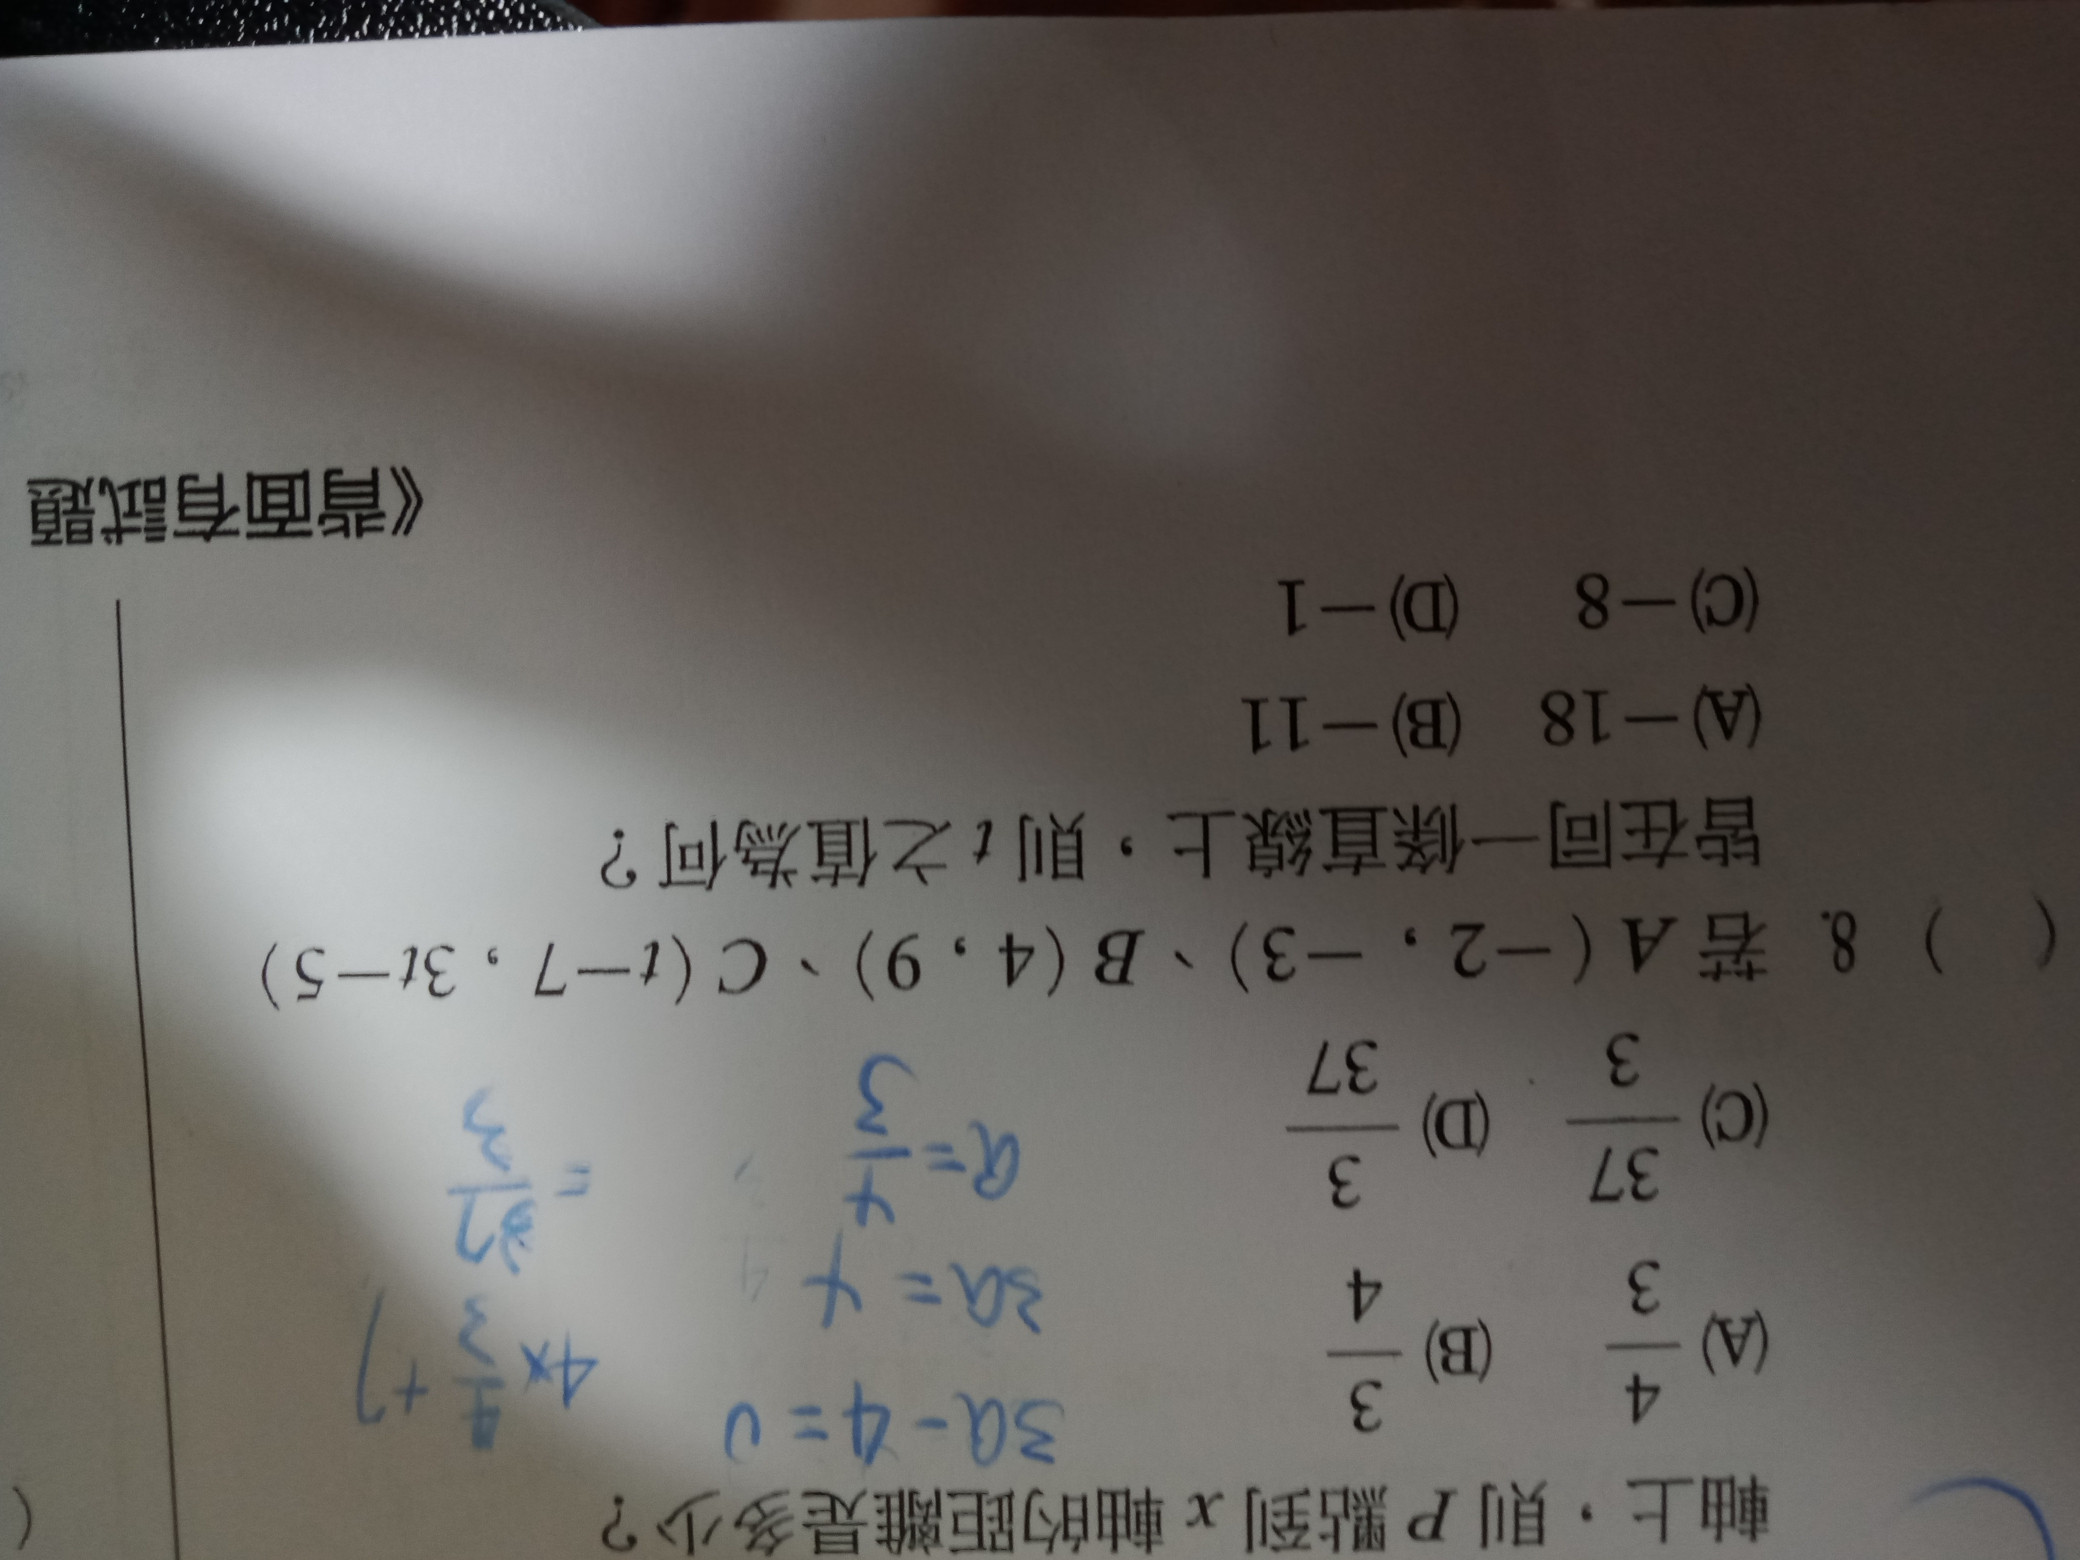 軸上，則 P 點到 x 軸的距離是多少？
(A) 4/3 (B) 3/4
(C) 37/3 (D) 3/37
3a-4=0
3a=4
a=4/3
4×4/3+7
=37/3
( ) 8. 若 A (－2，－3)、B (4，9)、C (t－7，3t－5)
皆在同一條直線上，則 t 之值為何？
(A)－18 (B)－11
(C)－8 (D)－1
《背面有試題